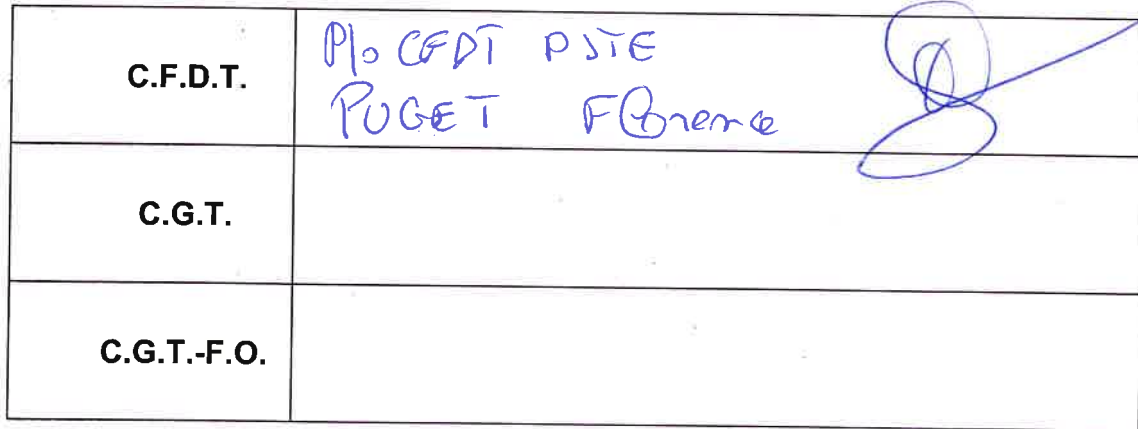 C.F.D.T.
P/o CFDT PSTE
PUGET Florence
C.G.T.
C.G.T.-F.O.